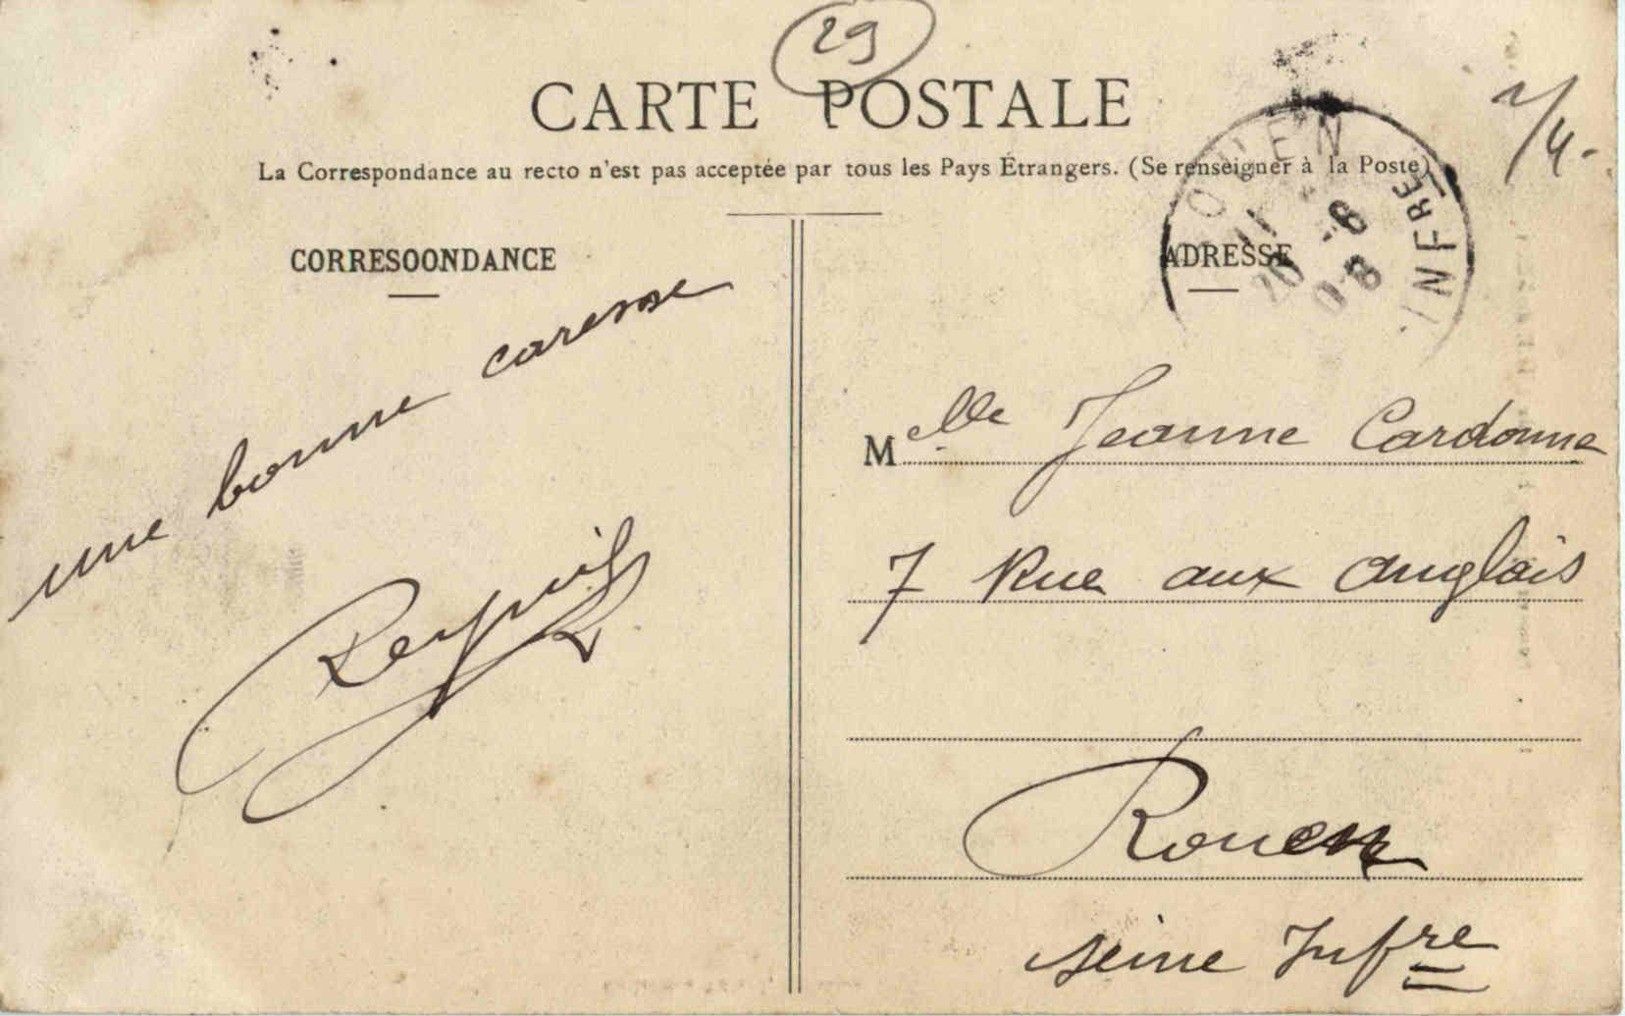 29
CARTE POSTALE
La Correspondance au recto n'est pas acceptée par tous les Pays Étrangers. (Se renseigner à la Poste)
CORRESOONDANCE
une bonne caresse
ADRESSE
ROUEN
11
20 -8
08
INFRE
Melle Jeanne Cardonne
7 Rue aux anglais
Rouen
Seine Infre